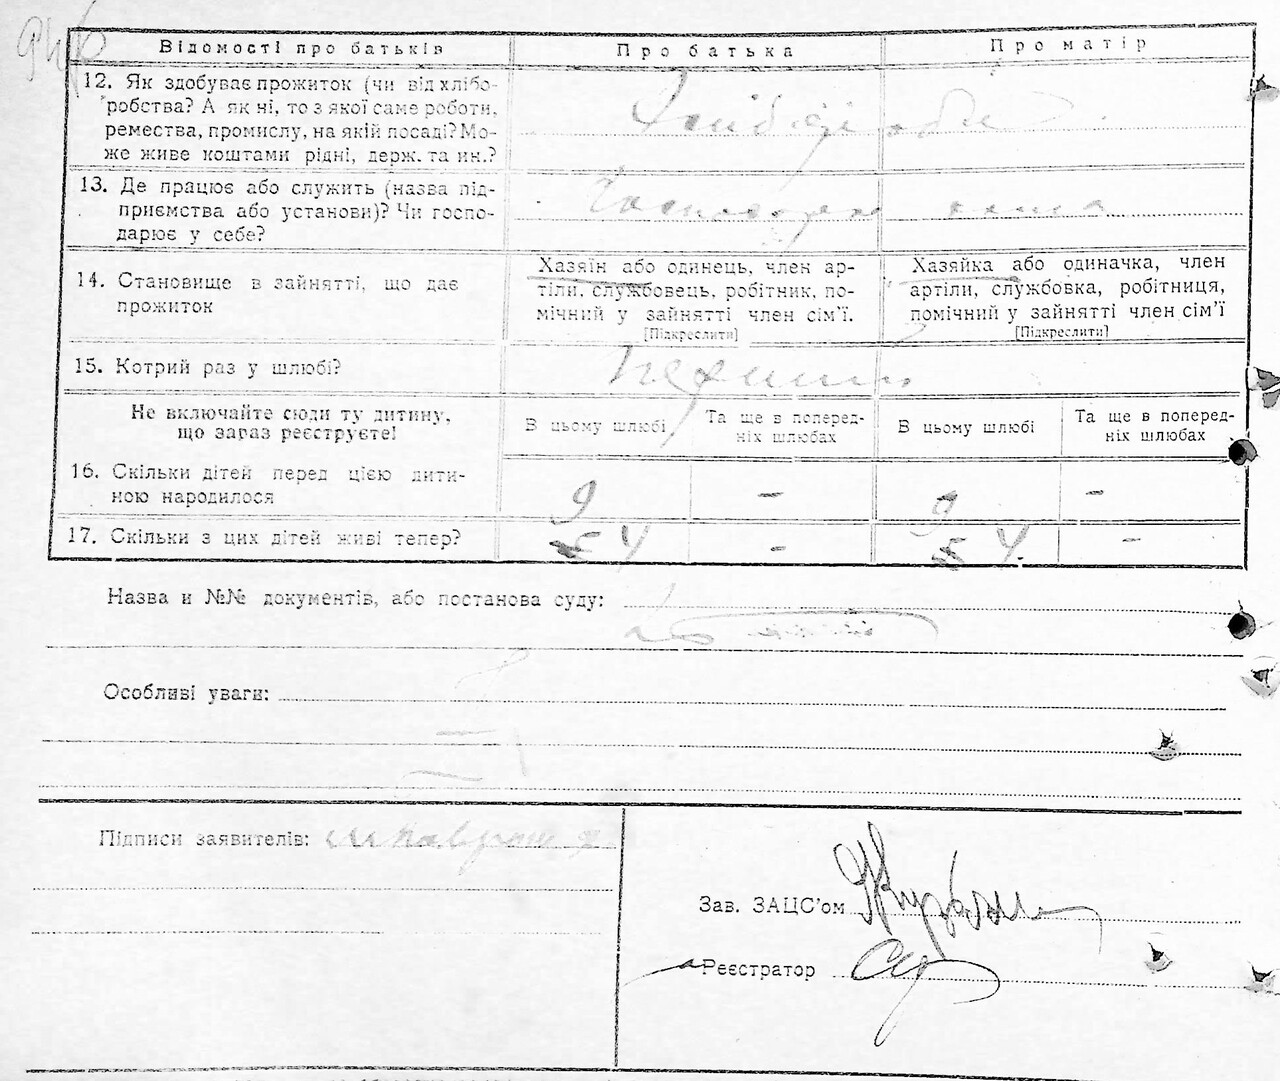 Відомості про батьків Про батька Про матір
12. Як здобуває прожиток (чи від хлібо-
робства? А як ні, то з якої саме роботи,
ремества, промислу, на якій посаді? Мо-
же живе коштами рідні, держ. та ин.?
13. Де працює або служить (назва під-
приємства або установи)? Чи госпо-
дарює у себе?
14. Становище в зайнятті, що дає
прожиток
Хазяїн або одинець, член ар-
тіли, службовець, робітник, по-
мічний у зайнятті член сім'ї.
[Підкреслити]
Хазяйка або одиначка, член
артіли, службовка, робітниця,
помічний у зайнятті член сім'ї
[Підкреслити]
15. Котрий раз у шлюбі?
Не включайте сюди ту дитину,
що зараз реєструєте!
В цьому шлюбі
Та ще в поперед-
ніх шлюбах
В цьому шлюбі
Та ще в поперед-
ніх шлюбах
16. Скільки дітей перед цією дити-
ною народилося
9 – 9 –
17. Скільки з цих дітей живі тепер? 5 4 – 5 4 –
Назва и №№ документів, або постанова суду:
Особливі уваги:
Підписи заявителів:
Зав. ЗАЦС'ом
Реєстратор